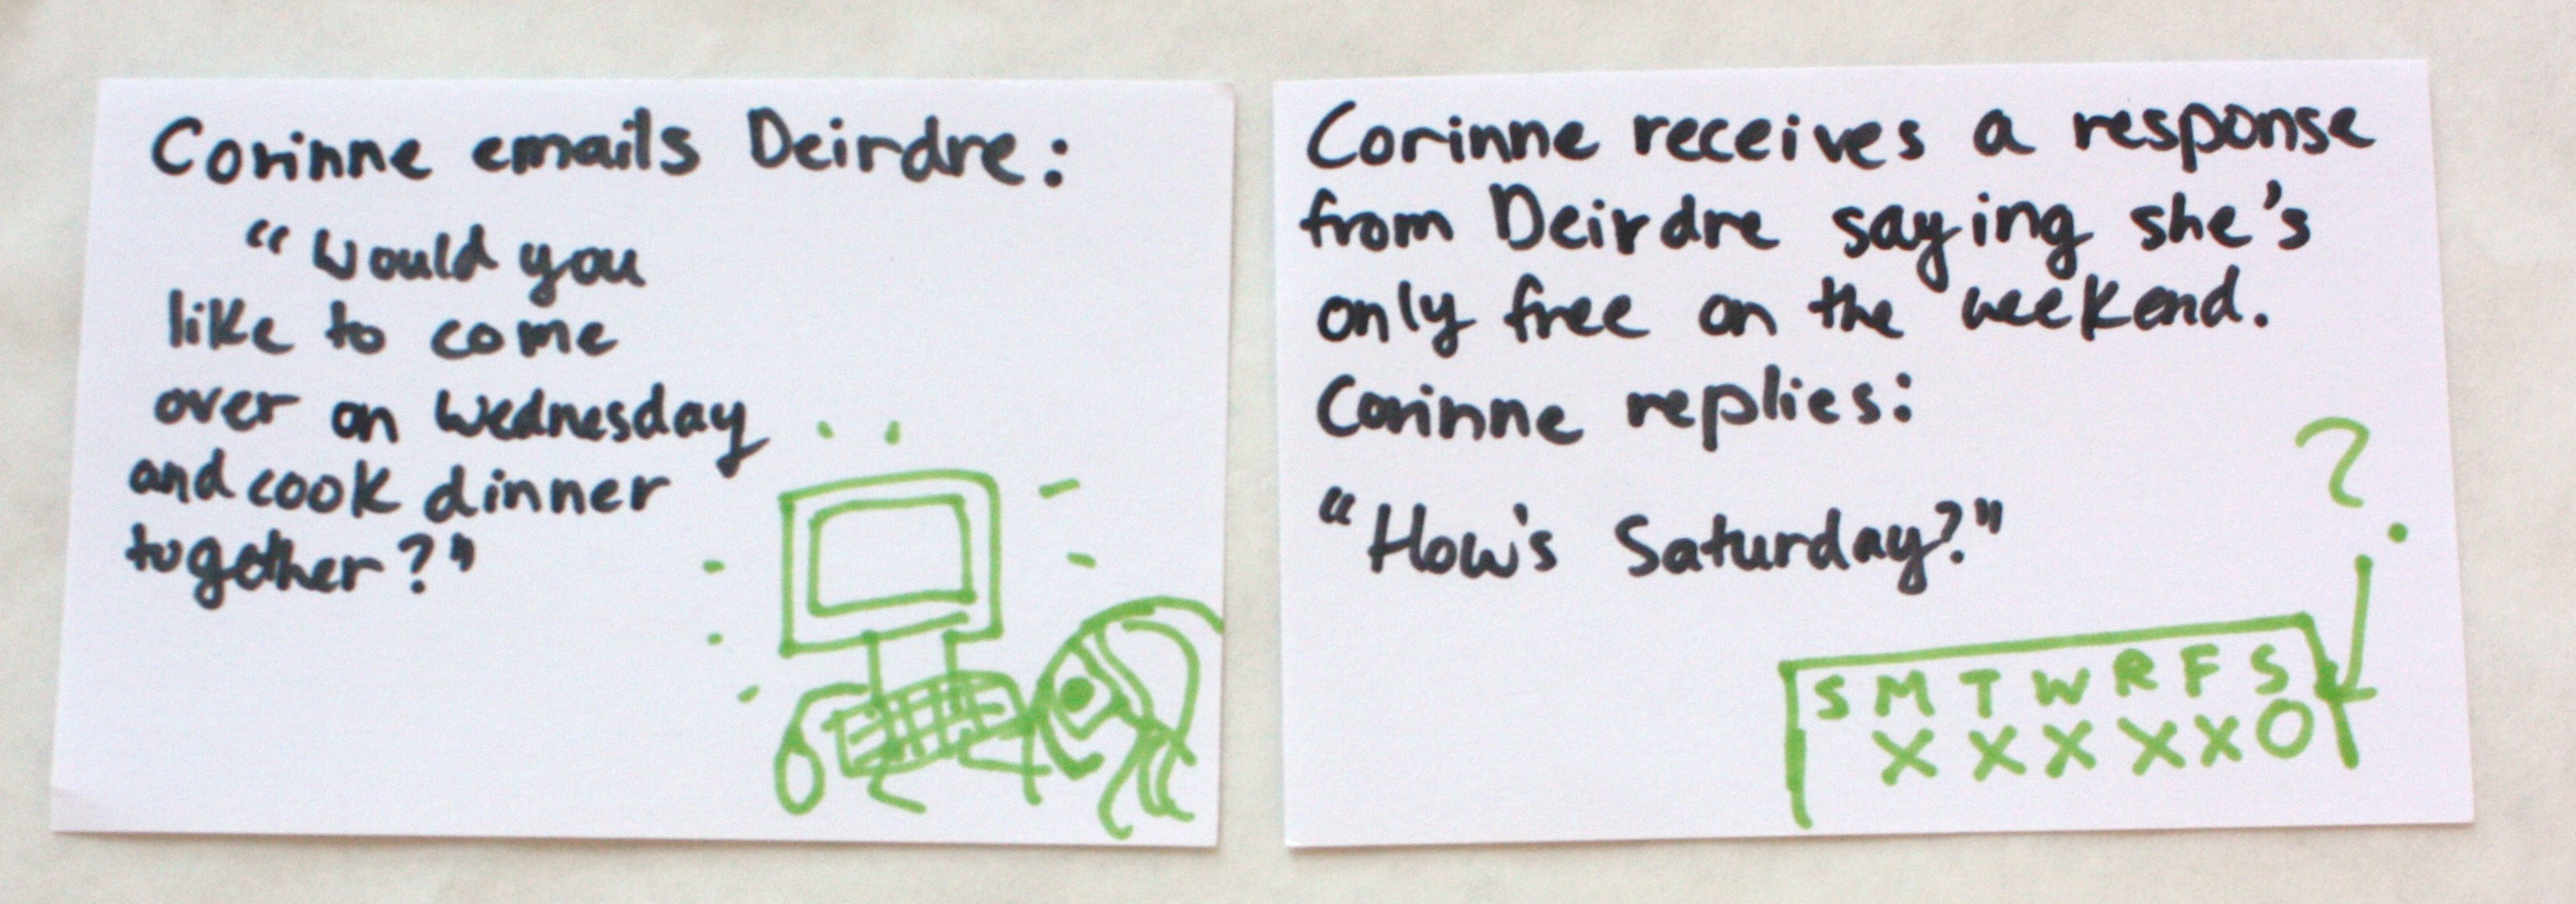 Corinne emails Deirdre:
"Would you
like to come
over on Wednesday
and cook dinner
together?"
Corinne receives a response
from Deirdre saying she's
only free on the weekend.
Corinne replies:
"How's Saturday?"
?
S M T W R F S
X X X X X O